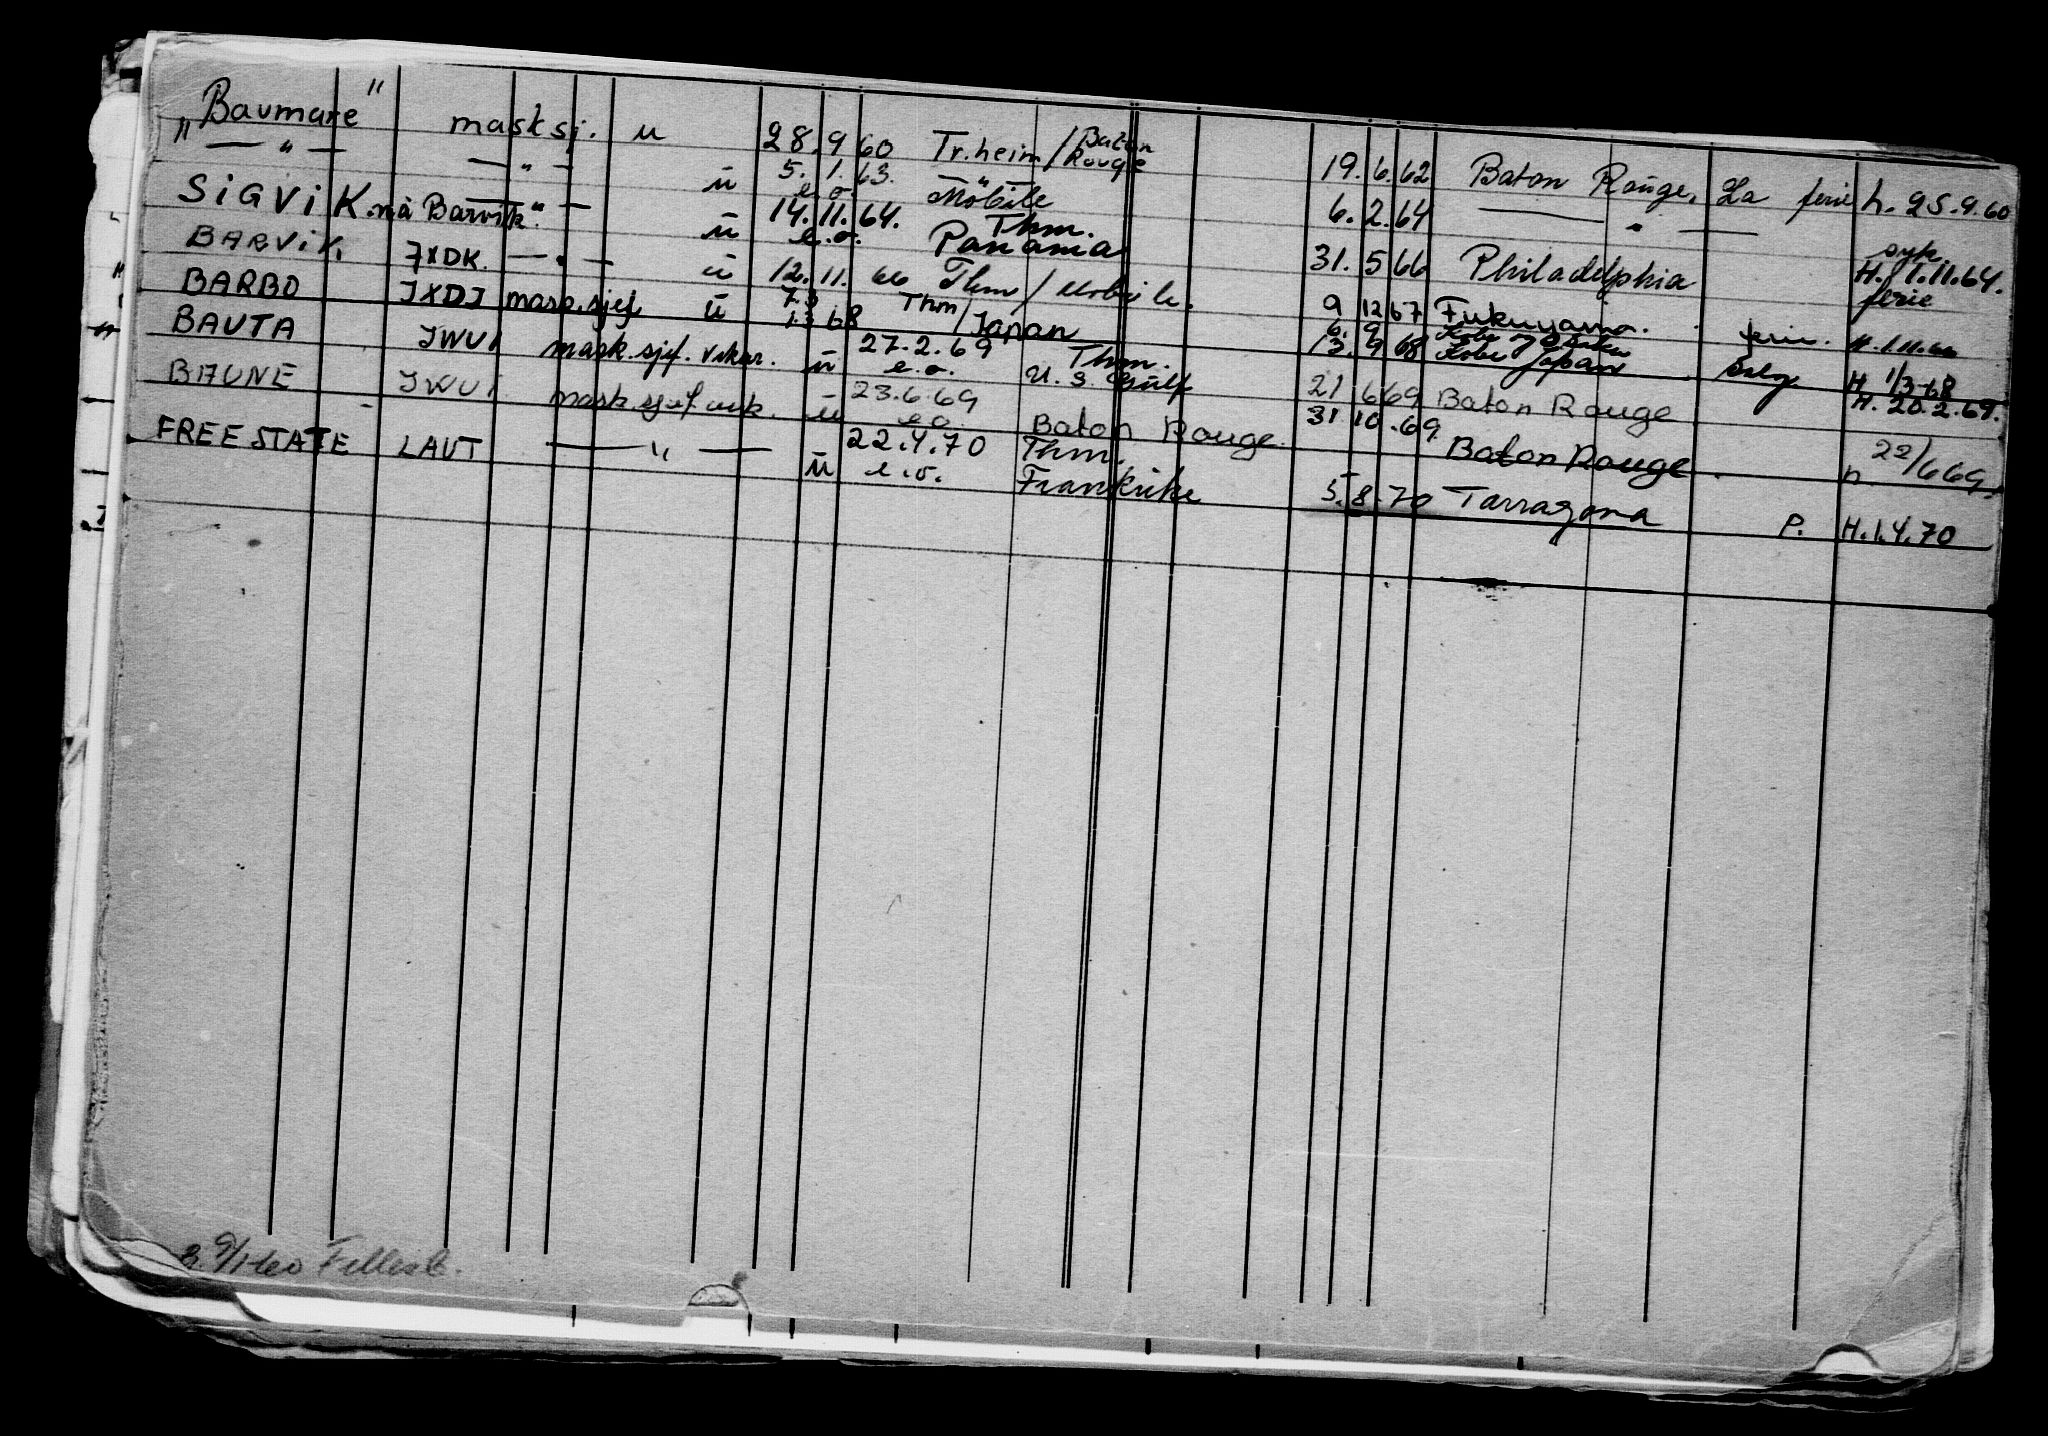 "Baumare" masksj. u 28.9 60 Tr.heim/Baton Rouge 19.6.62 Baton Rouge, La ferie h. 25.9.60
" — " — — " — ü 5.1.63. e.o. Mobile 6.2.64 — " —
SIGVIK. nå Barvik" — ü 14.11.64. e.o. Thm. Panama 31.5 66 Philadelphia syk H. 1.11.64. ferie
BARVIK. JXDK. — " — ü 12.11.66 Thm/Mobile. 9 12 67 Fukuyama. ferie. H. 1.11.66
BARBO JXDJ mask.sjef ü 7.3 1.3 68 Thm/Japan 6. 9 13. 9 68 Kobe Japan Salg H 1/3-68
BAUTA JWUI mask.sjef. vikar. ü 27.2.69 e.o. Thm. U.S. Gulf 21 6 69 Baton Rouge H. 20.2.69.
BAUNE JWUI mask.sjef vik. ü 23.6.69 e.o. Baton Rouge. 31 10.69. Baton Rouge. h 22/6 69.
FREE STATE LAUT — " — ü 22.4.70 e.o. Thm. Frankrike 5.8.70 Tarragona P. H.1.4.70